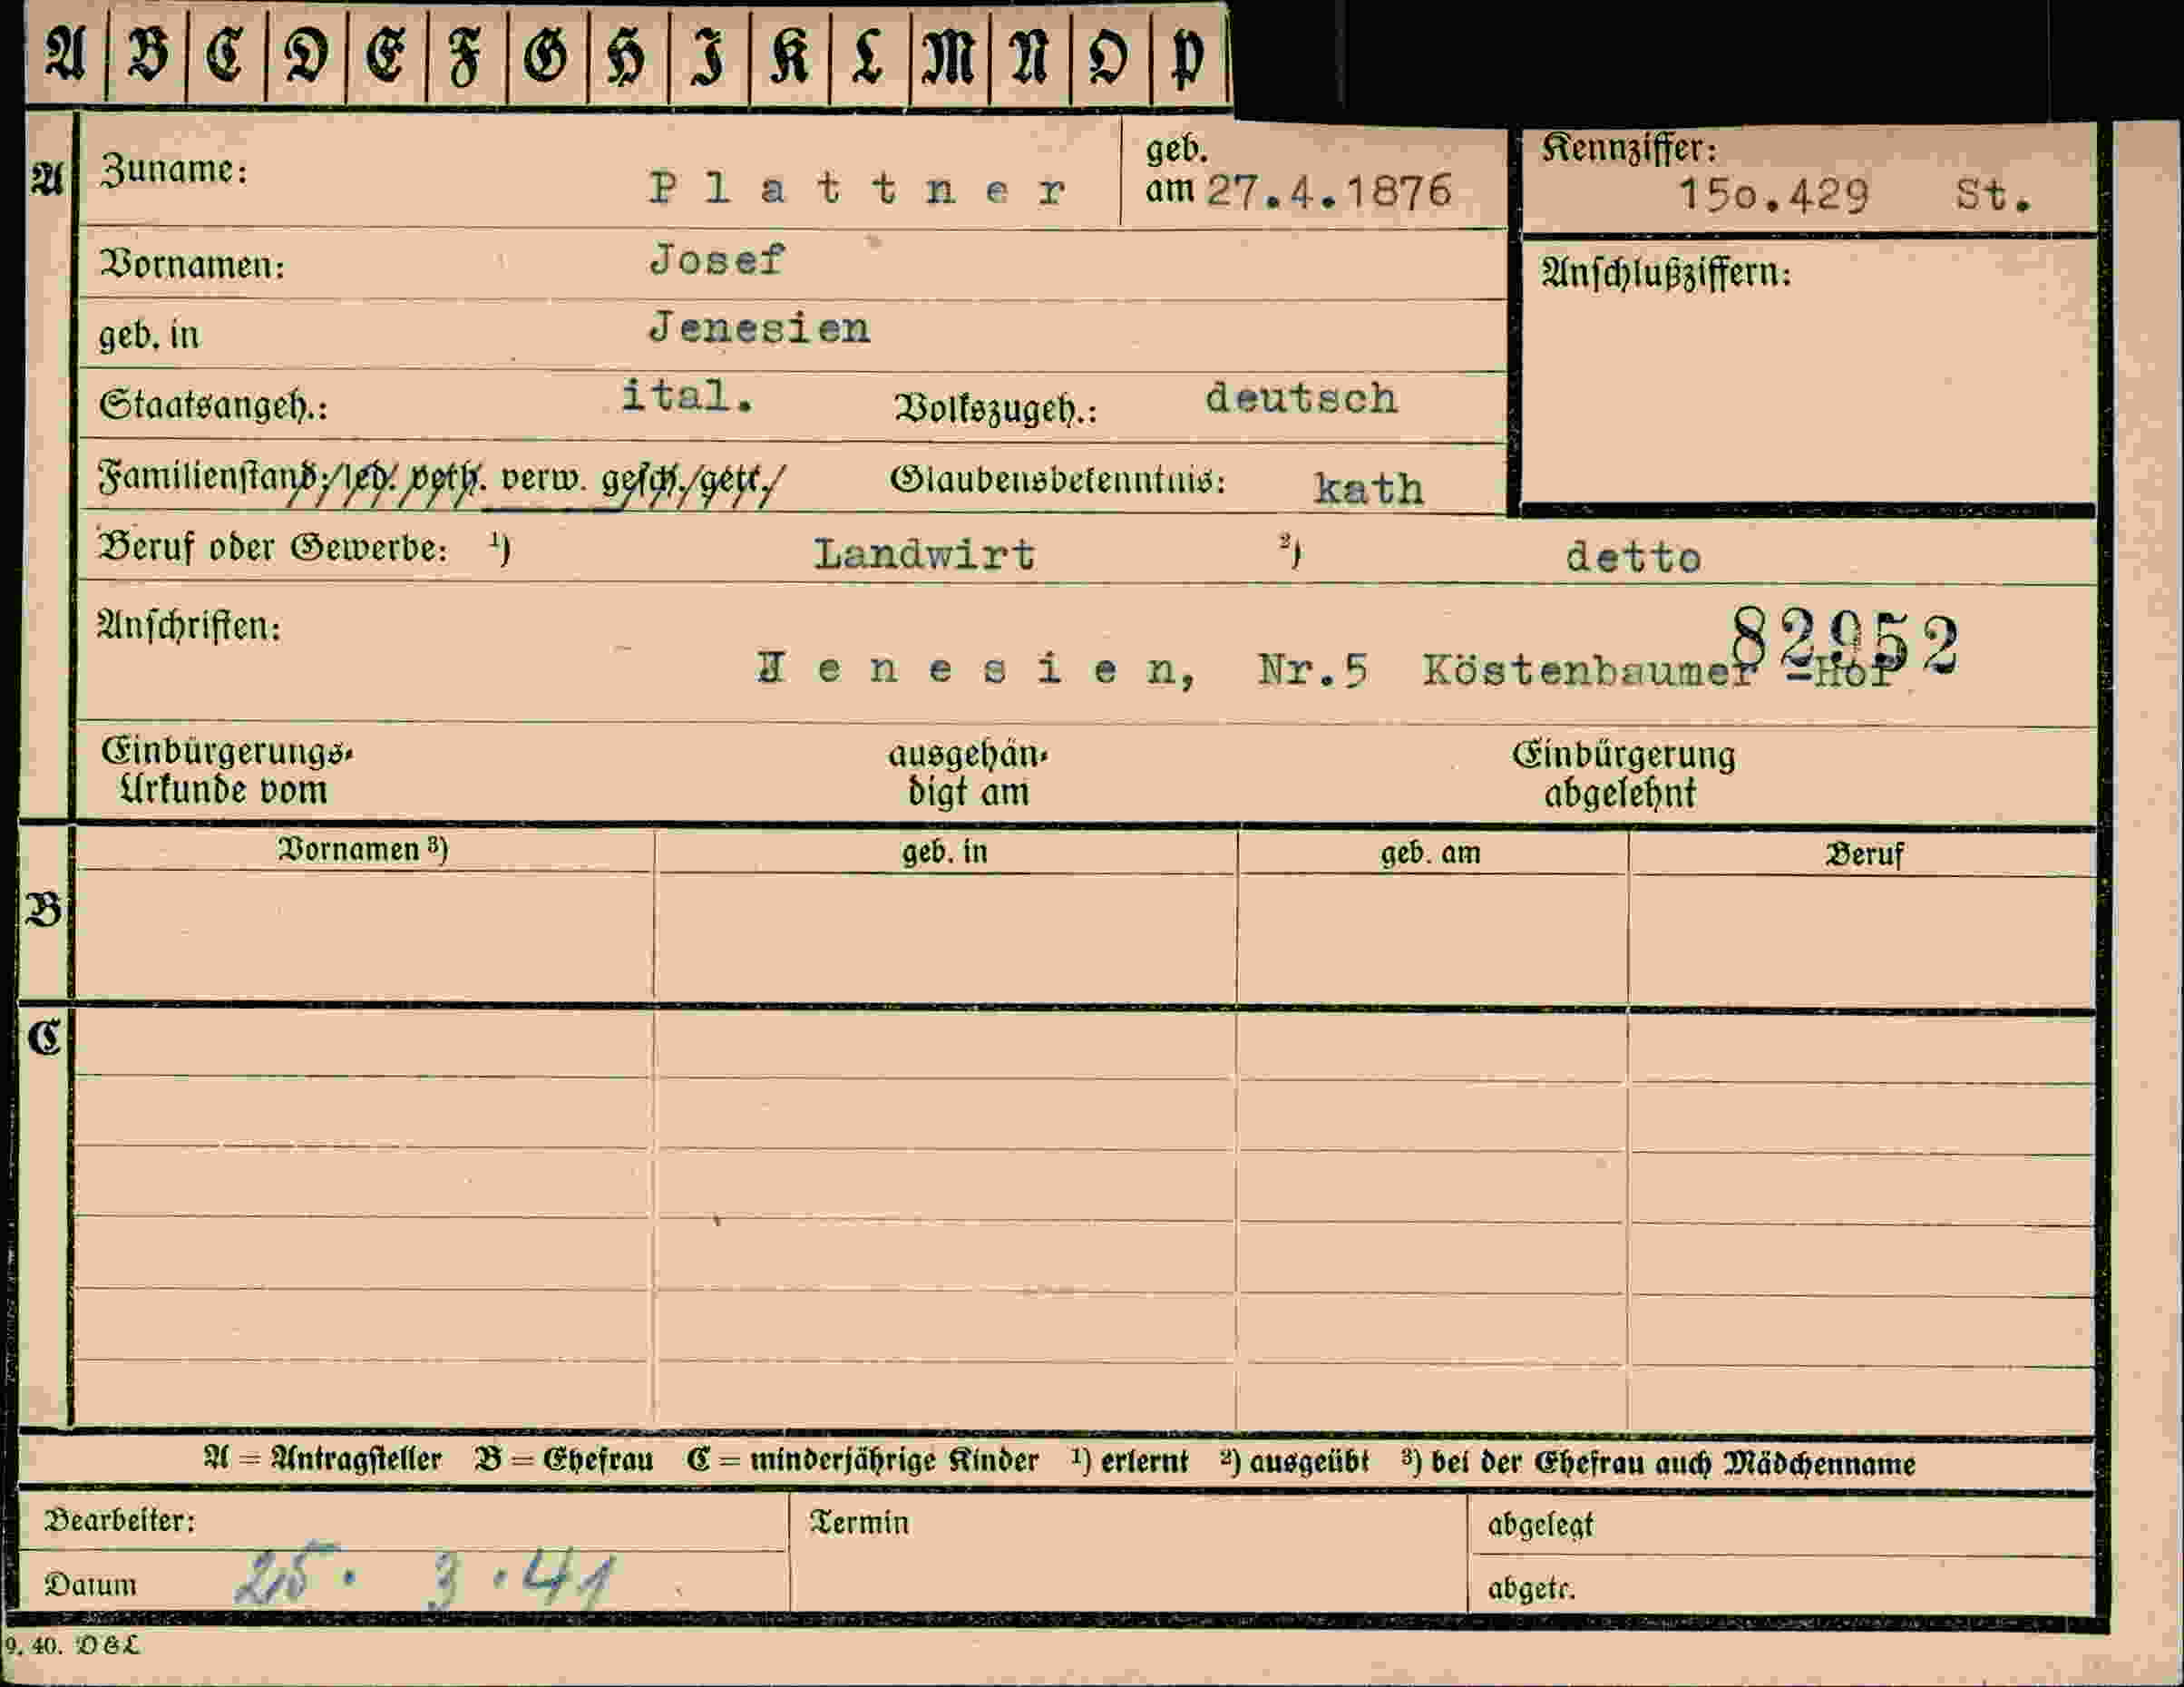 A B C D E F G H I K L M N O P
A
Zuname: Plattner
geb. am 27.4.1876
Kennziffer: 15o.429 St.
Vornamen: Josef
Anschlußziffern:
geb. in Jenesien
Staatsangeh.: ital. Volkszugeh.: deutsch
Familienstand: led. verh. verw. gesch. getr. Glaubensbekenntnis: kath
Beruf oder Gewerbe: ¹) Landwirt ²) detto
Anschriften:
82952
Jenesien, Nr.5 Köstenbaumer -Hof
Einbürgerungs-
Urkunde vom
ausgehän-
digt am
Einbürgerung
abgelehnt
Vornamen ³) geb. in geb. am Beruf
B
C
A = Antragsteller B = Ehefrau C = minderjährige Kinder ¹) erlernt ²) ausgeübt ³) bei der Ehefrau auch Mädchenname
Bearbeiter: Termin abgelegt
Datum 25. 3.41 abgetr.
9. 40. D&L